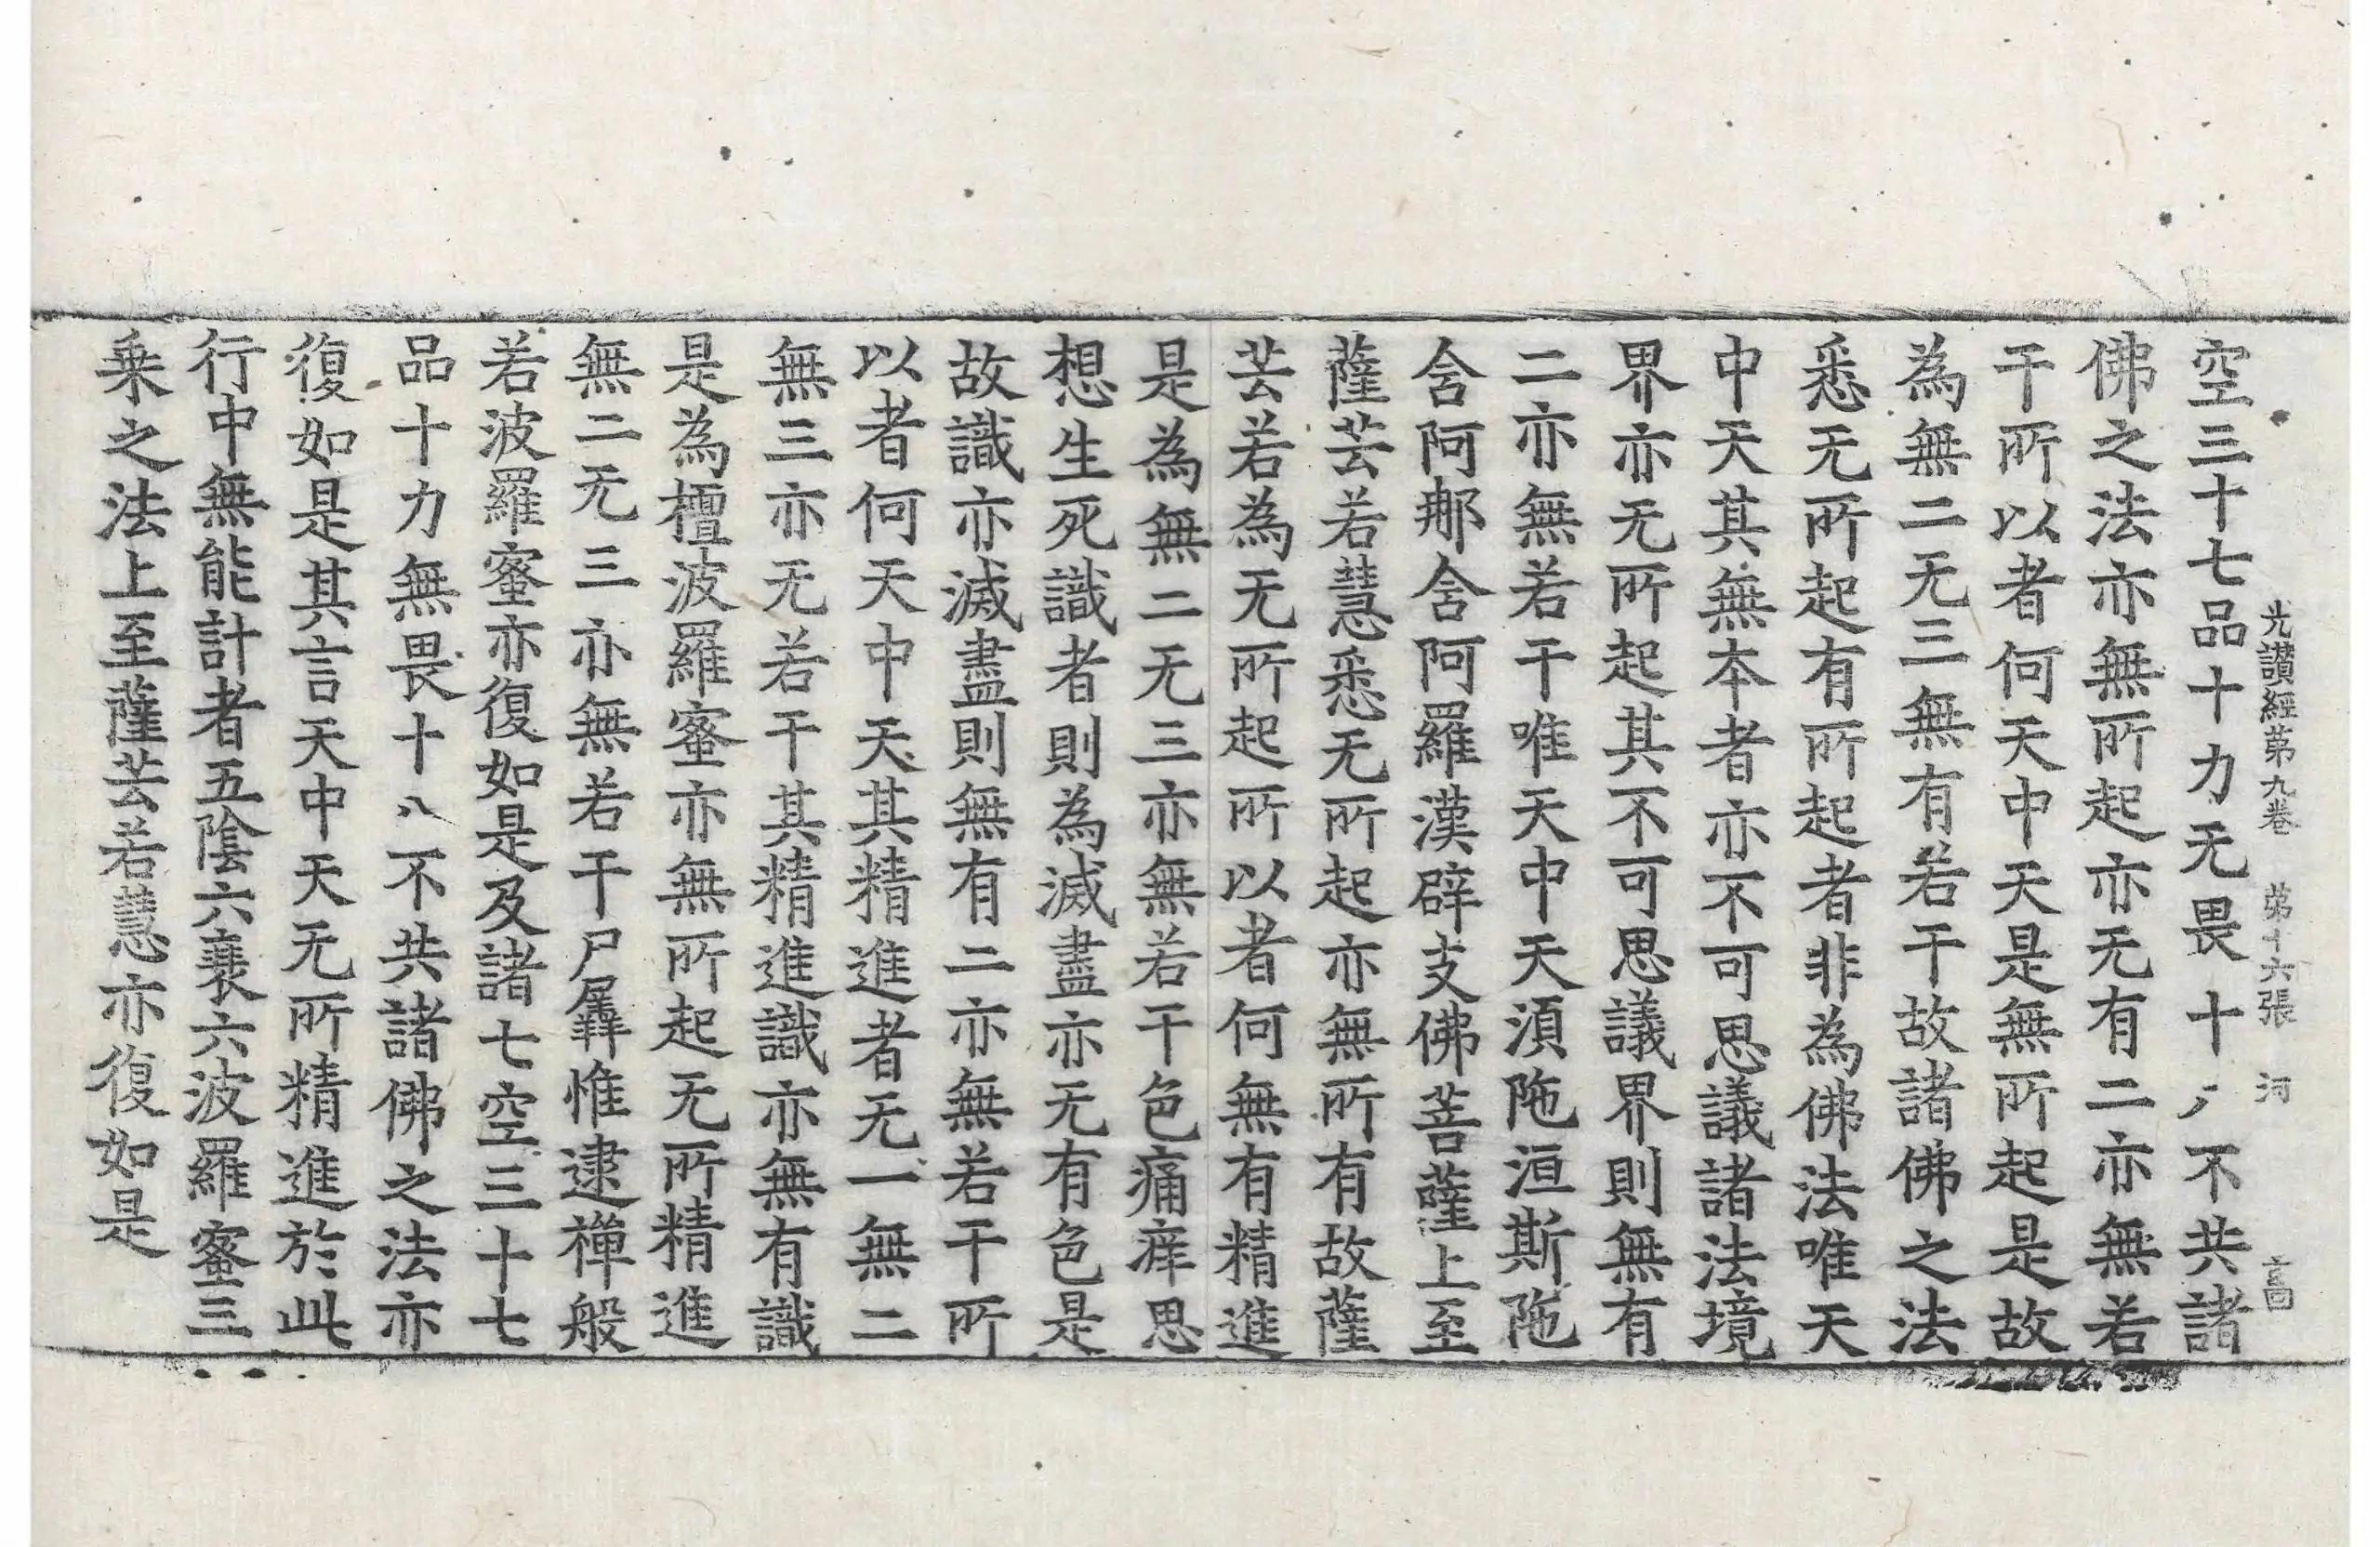 光讃經第九卷　第十六張　河
空三十七品十力无畏十八不共諸
佛之法亦無所起亦无有二亦無若
干所以者何天中天是無所起是故
為無二无三無有若干故諸佛之法
悉无所起有所起者非為佛法唯天
中天其無本者亦不可思議諸法境
界亦无所起其不可思議界則無有
二亦無若干唯天中天須陁洹斯陁
含阿那含阿羅漢辟支佛菩薩上至
薩芸若慧悉无所起亦無所有故薩
芸若為无所起所以者何無有精進
是為無二无三亦無若干色痛痒思
想生死識者則為滅盡亦无有色是
故識亦滅盡則無有二亦無若干所
以者何天中天其精進者无一無二
無三亦无若干其精進識亦無有識
是為檀波羅蜜亦無所起无所精進
無二无三亦無若干尸羼惟逮禪般
若波羅蜜亦復如是及諸七空三十七
品十力無畏十八不共諸佛之法亦
復如是其言天中天无所精進於此
行中無能計者五陰六衰六波羅蜜三
乘之法上至薩芸若慧亦復如是